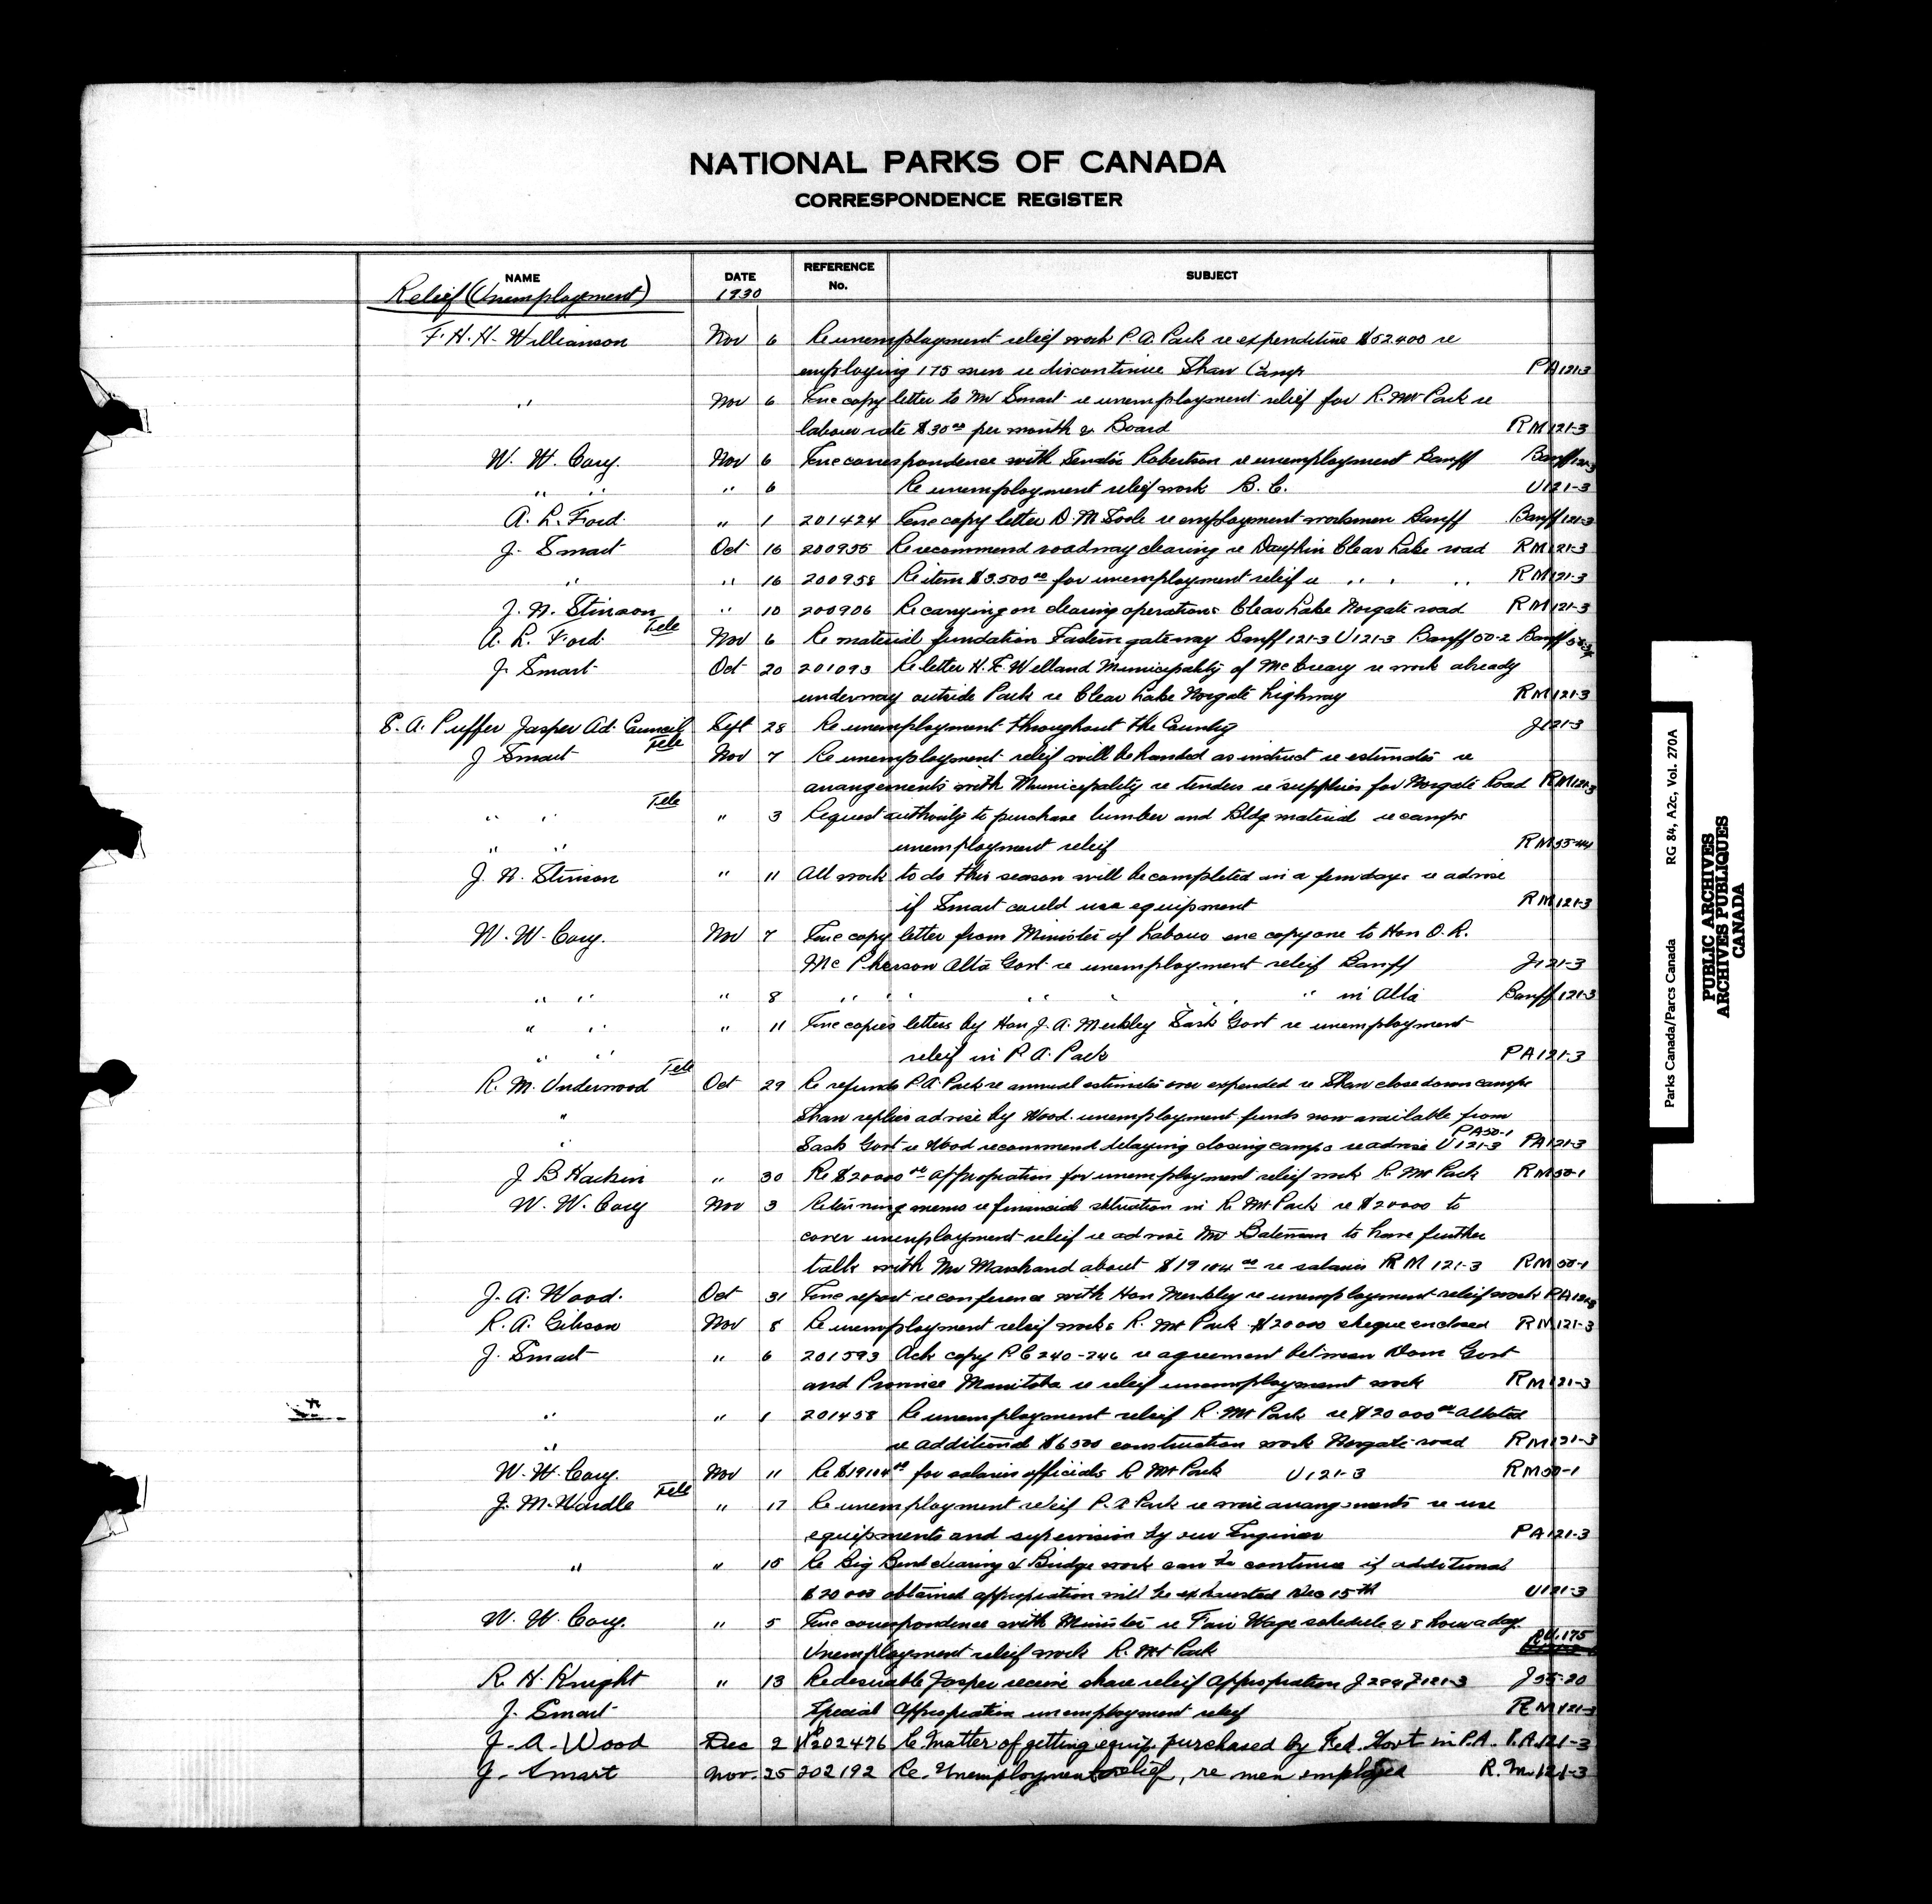 NATIONAL PARKS OF CANADA
CORRESPONDENCE REGISTER
NAME DATE REFERENCE No. SUBJECT
Relief (Unemployement) 1930
F. H. H. Williamson Nov 6 Re unemployment releif work P. A. Park re expenditure $52400 re
employing 175 men re discontinue Shaw Camp PA 121-3
" Nov 6 Enc copy letter to Mr Smart re unemployment relief for R. Mt Park re
labour rate $30 00 per month & Board RM 121-3
W. W. Cory. Nov 6 Enc correspondence with Senator Robertson re unemployment Banff Banff 121-3
" " " 6 Re unemployment releif work B. C. U 121-3
A. L. Ford. " 1 201424 Enc copy letter D. M. Soole re employment workmen Banff Banff 121-3
J. Smart Oct 16 200955 Re recommend roadway clearing re Dauphin Clear Lake road RM 121-3
" " 16 200958 Re item $3,500 00 for unemployment releif re " " " RM 121-3
J. N. Stinson " 10 200906 Re carrying on clearing operations Clear Lake Norgate road RM 121-3
A. L. Ford. Tele Nov 6 Re material fundation Eastern gateway Banff 121-3 U 121-3 Banff 50-2 Banff
J. Smart Oct 20 201093 Re letter H. F. Welland Municipality of McCreary re work already
underway outside Park re Clear Lake Norgate highway RM 121-3
S. A. Puffer Jasper Ad. Council Sept 28 Re unemployment throughout the Country J 121-3
J Smart Tele Nov 7 Re unemployment relief will be handed as instruct re estimates re
arrangements with Municipality re tenders re supplies for Norgate Road RM 121-3
" " Tele " 3 Request authority to purchase lumber and Bldg material re camps
" " unemployment releif RM 55-44
J. N. Stinson " 11 All work to do this season will be completed in a few days re advise
if Smart could use equipment RM 121-3
W. W. Cory. Nov 7 Enc copy letter from Minister of Labour enc copy one to Hon O. R.
McPherson Alta Govt re unemployment releif Banff J 121-3
" " " 8 " " " " " " " in Alta Banff 121-3
" " " 11 Enc copies letters by Hon J. A. Merkley Sask Govt re unemployment
" " releif in P. A. Park PA 121-3
R. M. Underwood Tele Oct 29 Re refunds P.A. Park re annual estimates over expended re Shaw close down camps
" Shaw replies advise by Wood. unemployment funds now available from
" Sask Govt re Wood recommend delaying closing camps re advise U 121-3 PA50-1 PA 121-3
J B Harkin " 30 Re $20000 00 appropriation for unemployment relief work R. Mt Park RM 50-1
W. W. Cory Nov 3 Returning memo re financial situation in R Mt Park re $20000 to
cover unemployment relief re advise Mr Bateman to have further
talk with Mr Marchand about $19104 00 re salaries RM 121-3 RM 50-1
J. A. Wood. Oct 31 Enc report re conference with Hon Merkley re unemployment releif work PA 121-3
R. A. Gibson Nov 8 Re unemployment releif works R. Mt Park $20000 cheque enclosed RM 121-3
J. Smart " 6 201593 Ack copy P.C 240-246 re agreement between Dom Govt
and Province Manitoba re releif unemployment work RM 121-3
" " 1 201458 Re unemployment releif R. Mt Park re $20000 00 alloted
" re additional $6500 construction work Norgate road RM 121-3
W. W. Cory. Nov 11 Re $19104 00 for salaries officials R Mt Park U 121-3 RM 50-1
J. M. Wardle Tele " 17 Re unemployment releif P. A Park re wire arrangements re use
equipments and supervision by our Engineer PA 121-3
" " 15 Re Big Bend clearing & Bridge work can be continue if additional
$20000 obtained appropriation will be exhausted Dec 15th U 121-3
W. W. Cory. " 5 Enc correspondence with Minister re Fair Wage schedule & 8 hour a day
Unemployment relief work R. Mt Park RU.175
R. H. Knight " 13 Re desirable Jasper receive share relief appropriation J 294 J 121-3 J 55-20
J. Smart Special Appropriation unemployment relief RM 121-3
J. A. Wood Dec 2 202476 Re Matter of getting equip. purchased by Fed. Govt in P.A. P.A. 121-3
J. Smart Nov. 25 202192 Re. Unemployment relief, re men employed R.M. 121-3
Parks Canada/Parcs Canada RG 84, A2c, Vol. 270A
PUBLIC ARCHIVES
ARCHIVES PUBLIQUES
CANADA